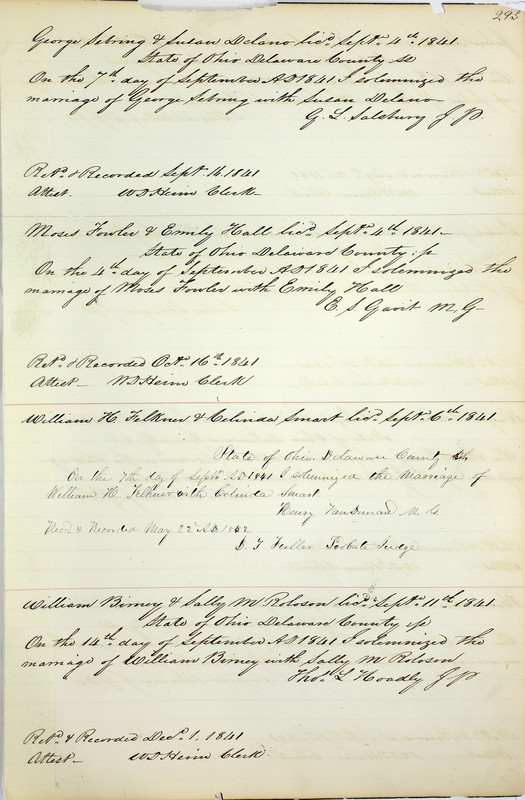 293
George Sebring & Susan Delano licd. Septr. 4th 1841.
State of Ohio Delaware County ss
On the 7th day of September AD 1841 I solemnized the
marriage of George Sebring with Susan Delano
G. L. Salsbury J P
Retd. & Recorded Septr. 16. 1841
Attest. W D Heim Clerk
Moses Fowler & Emily Hall licd. Septr. 4th 1841
State of Ohio Delaware County ss
On the 4th day of September AD 1841 I solemnized the
marriage of Moses Fowler with Emily Hall
E. S. Gavit M. G.
Retd. & Recorded Octr. 16th 1841
Attest W D Heim Clerk
William H. Felkner & Celinda Smart licd. Septr. 6th 1841.
State of Ohio. Delaware County ss.
On the 7th day of Septbr. A D 1841 I solemnized the Marriage of
William H. Felkner with Celinda Smart
Henry M. G.
Recd & Recorded May 22d A D
Fuller Probate Judge
William Birney & Sally M Roloson licd. Septr. 11th 1841.
State of Ohio Delaware County ss
On the 14th day of September AD 1841 I solemnized the
marriage of William Birney with Sally M Roloson
Thos. L Hoadly J P
Retd. & Recorded Decr. 1. 1841
Attest W D Heim Clerk